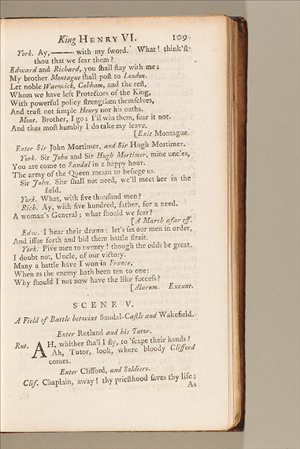 King HENRY VI. 109
York. Ay,——— with my sword. What! think'st
thou that we fear them?
Edward and Richard, you shall stay with me;
My brother Montague shall post to London.
Let noble Warwick, Cobham, and the rest,
Whom we have left Protectors of the King,
With powerful policy strengthen themselves,
And trust not simple Henry nor his oaths.
Mont. Brother, I go; I'll win them, fear it not.
And thus most humbly I do take my leave.
[Exit Montague.
Enter Sir John Mortimer, and Sir Hugh Mortimer.
York. Sir John and Sir Hugh Mortimer, mine uncles,
You are come to Sandal in a happy hour.
The army of the Queen means to besiege us.
Sir John. She shall not need, we'll meet her in the
field.
York. What, with five thousand men?
Rich. Ay, with five hundred, father, for a need.
A woman's General; what should we fear?
[A March afar off.
Edw. I hear their drums: let's set our men in order,
And issue forth and bid them battle strait.
York. Five men to twenty! though the odds be great,
I doubt not, Uncle, of our victory.
Many a battle have I won in France,
When as the enemy hath been ten to one:
Why should I not now have the like success?
[Alarum. Exeunt.
SCENE V.
A Field of Battle betwixt Sandal-Castle and Wakefield.
Enter Rutland and his Tutor.
Rut. AH, whither shall I fly, to 'scape their hands?
Ah, Tutor, look, where bloody Clifford
comes.
Enter Clifford, and Soldiers.
Clif. Chaplain, away! thy priesthood saves thy life;
As